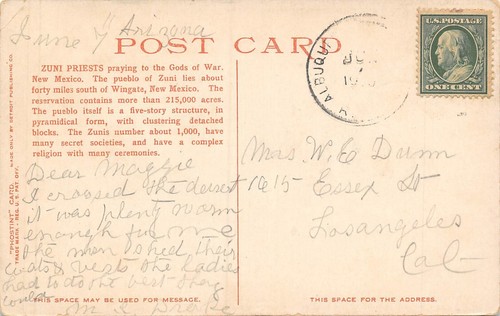 June 7 Arizona
POST CARD
ZUNI PRIESTS praying to the Gods of War.
New Mexico. The pueblo of Zuni lies about
forty miles south of Wingate, New Mexico. The
reservation contains more than 215,000 acres.
The pueblo itself is a five-story structure, in
pyramidical form, with clustering detached
blocks. The Zunis number about 1,000, have
many secret societies, and have a complex
religion with many ceremonies.
"PHOSTINT" CARD. MADE ONLY BY DETROIT PUBLISHING CO.
TRADE MARK REG. U.S. PAT. OFF.
Dear Maggie
I crossed the desert
it was plenty warm
enough for me
the men shed their
coats & vests the ladies
had to do the best they
could
THIS SPACE MAY BE USED FOR MESSAGE.
ALBUQU
U.S. POSTAGE
ONE CENT
Mrs W. E Dunn
1615 Essex St
Losangeles
Cal-
THIS SPACE IS FOR ADDRESS ONLY.